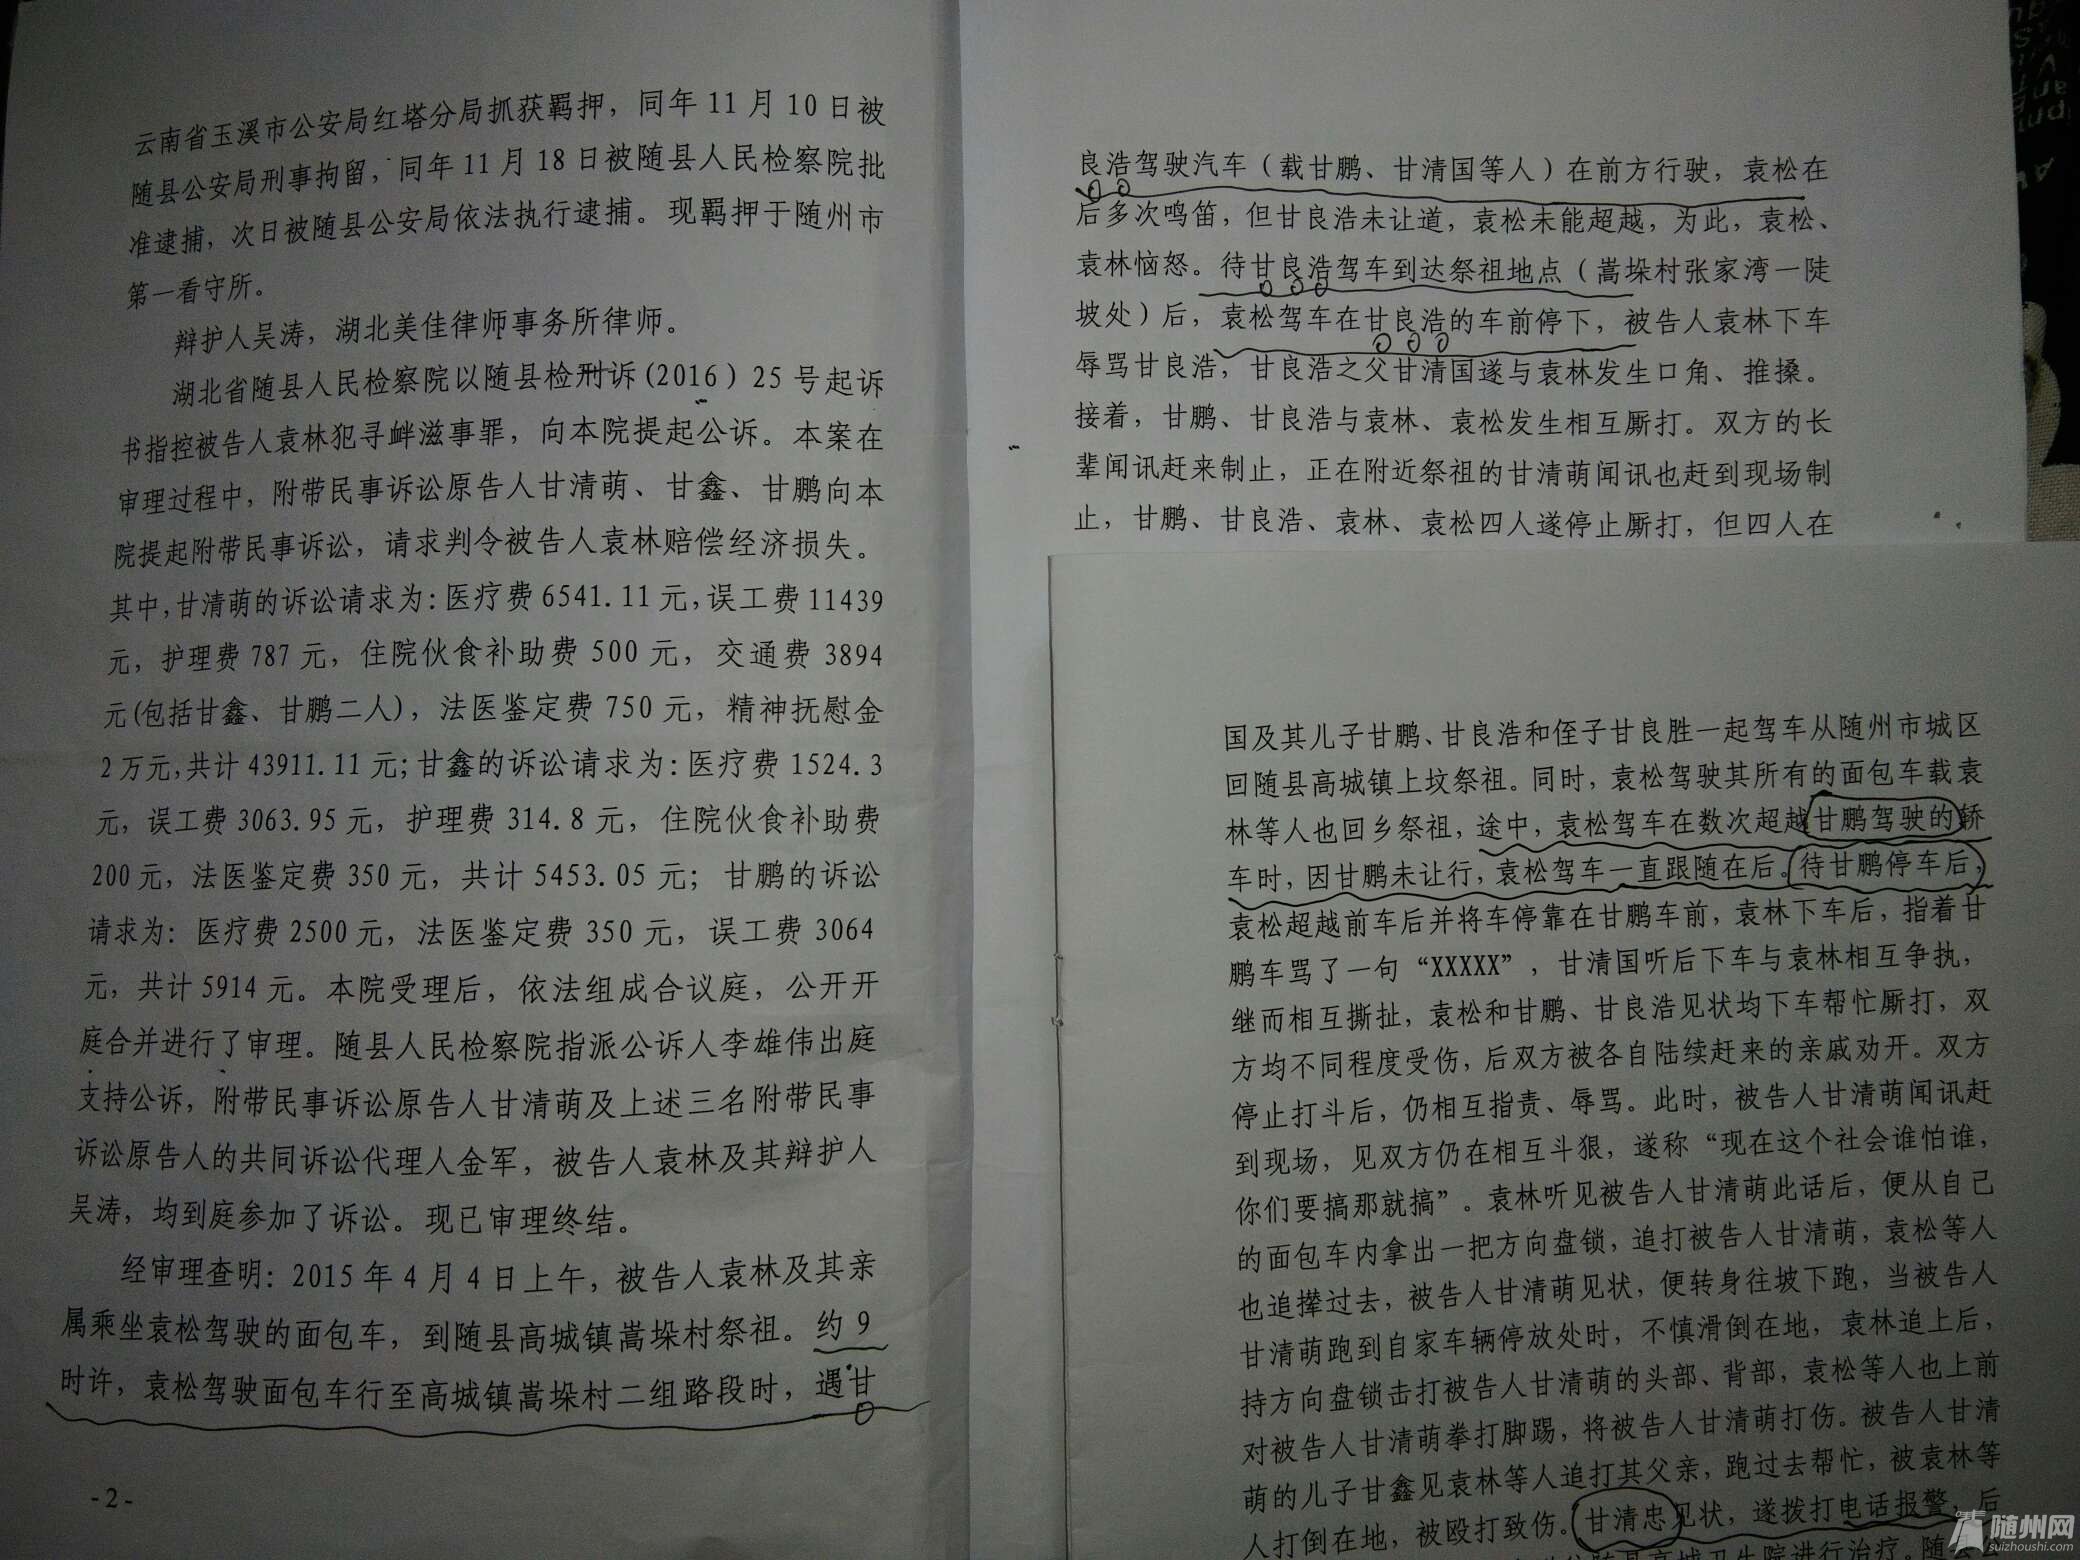 云南省玉溪市公安局红塔分局抓获羁押，同年11月10日被
随县公安局刑事拘留，同年11月18日被随县人民检察院批
准逮捕，次日被随县公安局依法执行逮捕。现羁押于随州市
第一看守所。
辩护人吴涛，湖北美佳律师事务所律师。
湖北省随县人民检察院以随县检刑诉(2016）25号起诉
书指控被告人袁林犯寻衅滋事罪，向本院提起公诉。本案在
审理过程中，附带民事诉讼原告人甘清萌、甘鑫、甘鹏向本
院提起附带民事诉讼，请求判令被告人袁林赔偿经济损失。
其中,甘清萌的诉讼请求为:医疗费6541.11元,误工费11439
元，护理费787元，住院伙食补助费500元，交通费3894
元(包括甘鑫、甘鹏二人)，法医鉴定费750元，精神抚慰金
2万元,共计43911.11元;甘鑫的诉讼请求为:医疗费1524.3
元，误工费3063.95元，护理费314.8元，住院伙食补助费
200元，法医鉴定费350元，共计5453.05元；甘鹏的诉讼
请求为：医疗费2500元，法医鉴定费350元，误工费3064
元，共计5914元。本院受理后，依法组成合议庭，公开开
庭合并进行了审理。随县人民检察院指派公诉人李雄伟出庭
支持公诉，附带民事诉讼原告人甘清萌及上述三名附带民事
诉讼原告人的共同诉讼代理人金军，被告人袁林及其辩护人
吴涛，均到庭参加了诉讼。现已审理终结。
经审理查明：2015年4月4日上午，被告人袁林及其亲
属乘坐袁松驾驶的面包车，到随县高城镇嵩垛村祭祖。约9
时许，袁松驾驶面包车行至高城镇嵩垛村二组路段时，遇甘
-2-
良浩驾驶汽车（载甘鹏、甘清国等人）在前方行驶，袁松在
后多次鸣笛，但甘良浩未让道，袁松未能超越，为此，袁松、
袁林恼怒。待甘良浩驾车到达祭祖地点（嵩垛村张家湾一陡
坡处）后，袁松驾车在甘良浩的车前停下，被告人袁林下车
辱骂甘良浩，甘良浩之父甘清国遂与袁林发生口角、推搡。
接着，甘鹏、甘良浩与袁林、袁松发生相互厮打。双方的长
辈闻讯赶来制止，正在附近祭祖的甘清萌闻讯也赶到现场制
止，甘鹏、甘良浩、袁林、袁松四人遂停止厮打，但四人在
国及其儿子甘鹏、甘良浩和侄子甘良胜一起驾车从随州市城区
回随县高城镇上坟祭祖。同时，袁松驾驶其所有的面包车载袁
林等人也回乡祭祖，途中，袁松驾车在数次超越甘鹏驾驶的轿
车时，因甘鹏未让行，袁松驾车一直跟随在后。待甘鹏停车后，
袁松超越前车后并将车停靠在甘鹏车前，袁林下车后，指着甘
鹏车骂了一句“XXXXX”，甘清国听后下车与袁林相互争执，
继而相互撕扯，袁松和甘鹏、甘良浩见状均下车帮忙厮打，双
方均不同程度受伤，后双方被各自陆续赶来的亲戚劝开。双方
停止打斗后，仍相互指责、辱骂。此时，被告人甘清萌闻讯赶
到现场，见双方仍在相互斗狠，遂称“现在这个社会谁怕谁，
你们要搞那就搞”。袁林听见被告人甘清萌此话后，便从自己
的面包车内拿出一把方向盘锁，追打被告人甘清萌，袁松等人
也追撵过去，被告人甘清萌见状，便转身往坡下跑，当被告人
甘清萌跑到自家车辆停放处时，不慎滑倒在地，袁林追上后，
持方向盘锁击打被告人甘清萌的头部、背部，袁松等人也上前
对被告人甘清萌拳打脚踢，将被告人甘清萌打伤。被告人甘清
萌的儿子甘鑫见袁林等人追打其父亲，跑过去帮忙，被袁林等
人打倒在地，被殴打致伤。甘清忠见状，遂拨打电话报警，后
随县高城卫生院进行治疗。随
随州网
suizhoushi.com